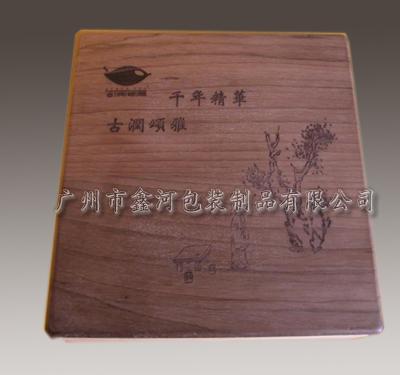 千年精華
古潤頌雅
广州市鑫河包装制品有限公司